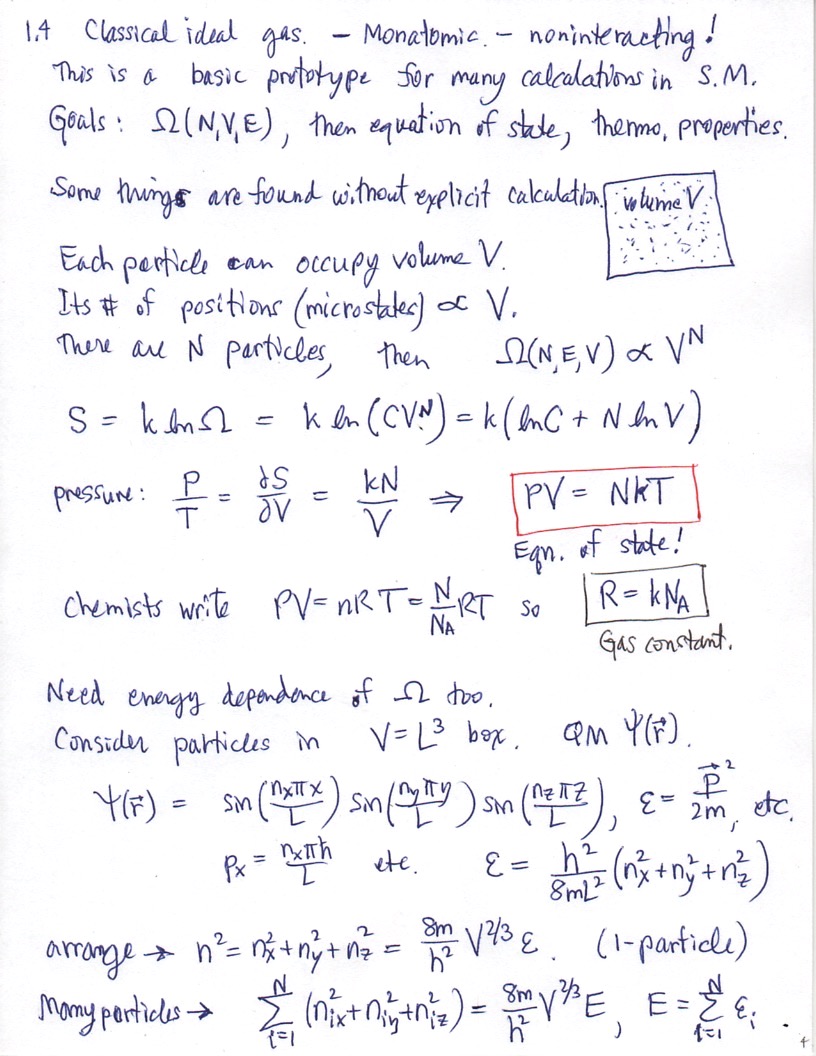 1.4 Classical ideal gas. – Monatomic. – noninteracting!
This is a basic prototype for many calculations in S.M.
Goals: Ω(N,V,E), then equation of state, thermo, properties.
Some things are found without explicit calculation.
volume V
Each particle can occupy volume V.
Its # of positions (microstates) ∝ V.
There are N particles, then Ω(N,E,V) ∝ V^N
S = k ln Ω = k ln (CV^N) = k (ln C + N ln V)
pressure: P/T = ∂S/∂V = kN/V ⇒ PV = NkT
Eqn. of state!
Chemists write PV = nRT = N/N_A RT so R = kN_A
Gas constant.
Need energy dependence of Ω too.
Consider particles in V = L³ box. QM Ψ(r⃗).
Ψ(r⃗) = sin(n_xπx/L) sin(n_yπy/L) sin(n_zπz/L), ε = p⃗²/2m, etc.
p_x = n_xπħ/L etc. ε = h²/8mL² (n_x² + n_y² + n_z²)
arrange → n² = n_x² + n_y² + n_z² = 8m/h² V^2/3 ε. (1-particle)
Many particles → Σ_{i=1}^N (n_ix² + n_iy² + n_iz²) = 8m/h² V^2/3 E, E = Σ_{i=1}^N ε_i.
4